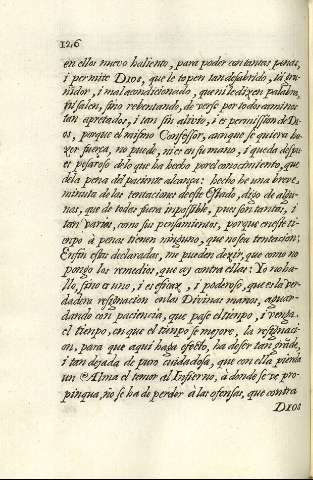 126
en ellos nuevo haliento, para poder con tantas penas,
i permite DIOS, que le topen tan desabrido, tã gru
ñidor, i mal acondicionado, que ni le dizen palabra,
ni salen, sino rebentando, de verse por todos caminos
tan apretados, i tan sin alivio, i es permission de Di-
os, porque el mismo Confessor, aunque se quiera ha-
zer fuerça, no puede, ni es en su mano, i queda despu-
es pesaroso de lo que ha hecho por el conocimiento, que
de la pena del paciente alcança: hecho he una breve
minuta de las tentaciones de este Estado, digo de algu-
nas, que de todas fuera impossible, pues son tantas, i
tan varias, como sus pensamientos, porque en este ti-
enpo à penas tienen ninguno, que no sea tentacion:
En fin estas declaradas, me pueden dezir, que como no
pongo los remedios, que ay contra ellas: Yo no ha-
llo, sino es uno, i es eficaz, i poderoso, que es la ver-
dadera resignacion en las Divinas manos, aguar-
dando con paciencia, que pase el tienpo, i venga,
el tienpo, en que el tienpo se mejore, la resignaci-
on, para que aqui haga efecto, ha de ser tan grãde,
i tan dejada de puro cuidadosa, que con ella pierda
un Alma el temor al Infierno, à donde se ve pro-
pinqua, no se ha de perder à las ofensas, que contra
DIOS